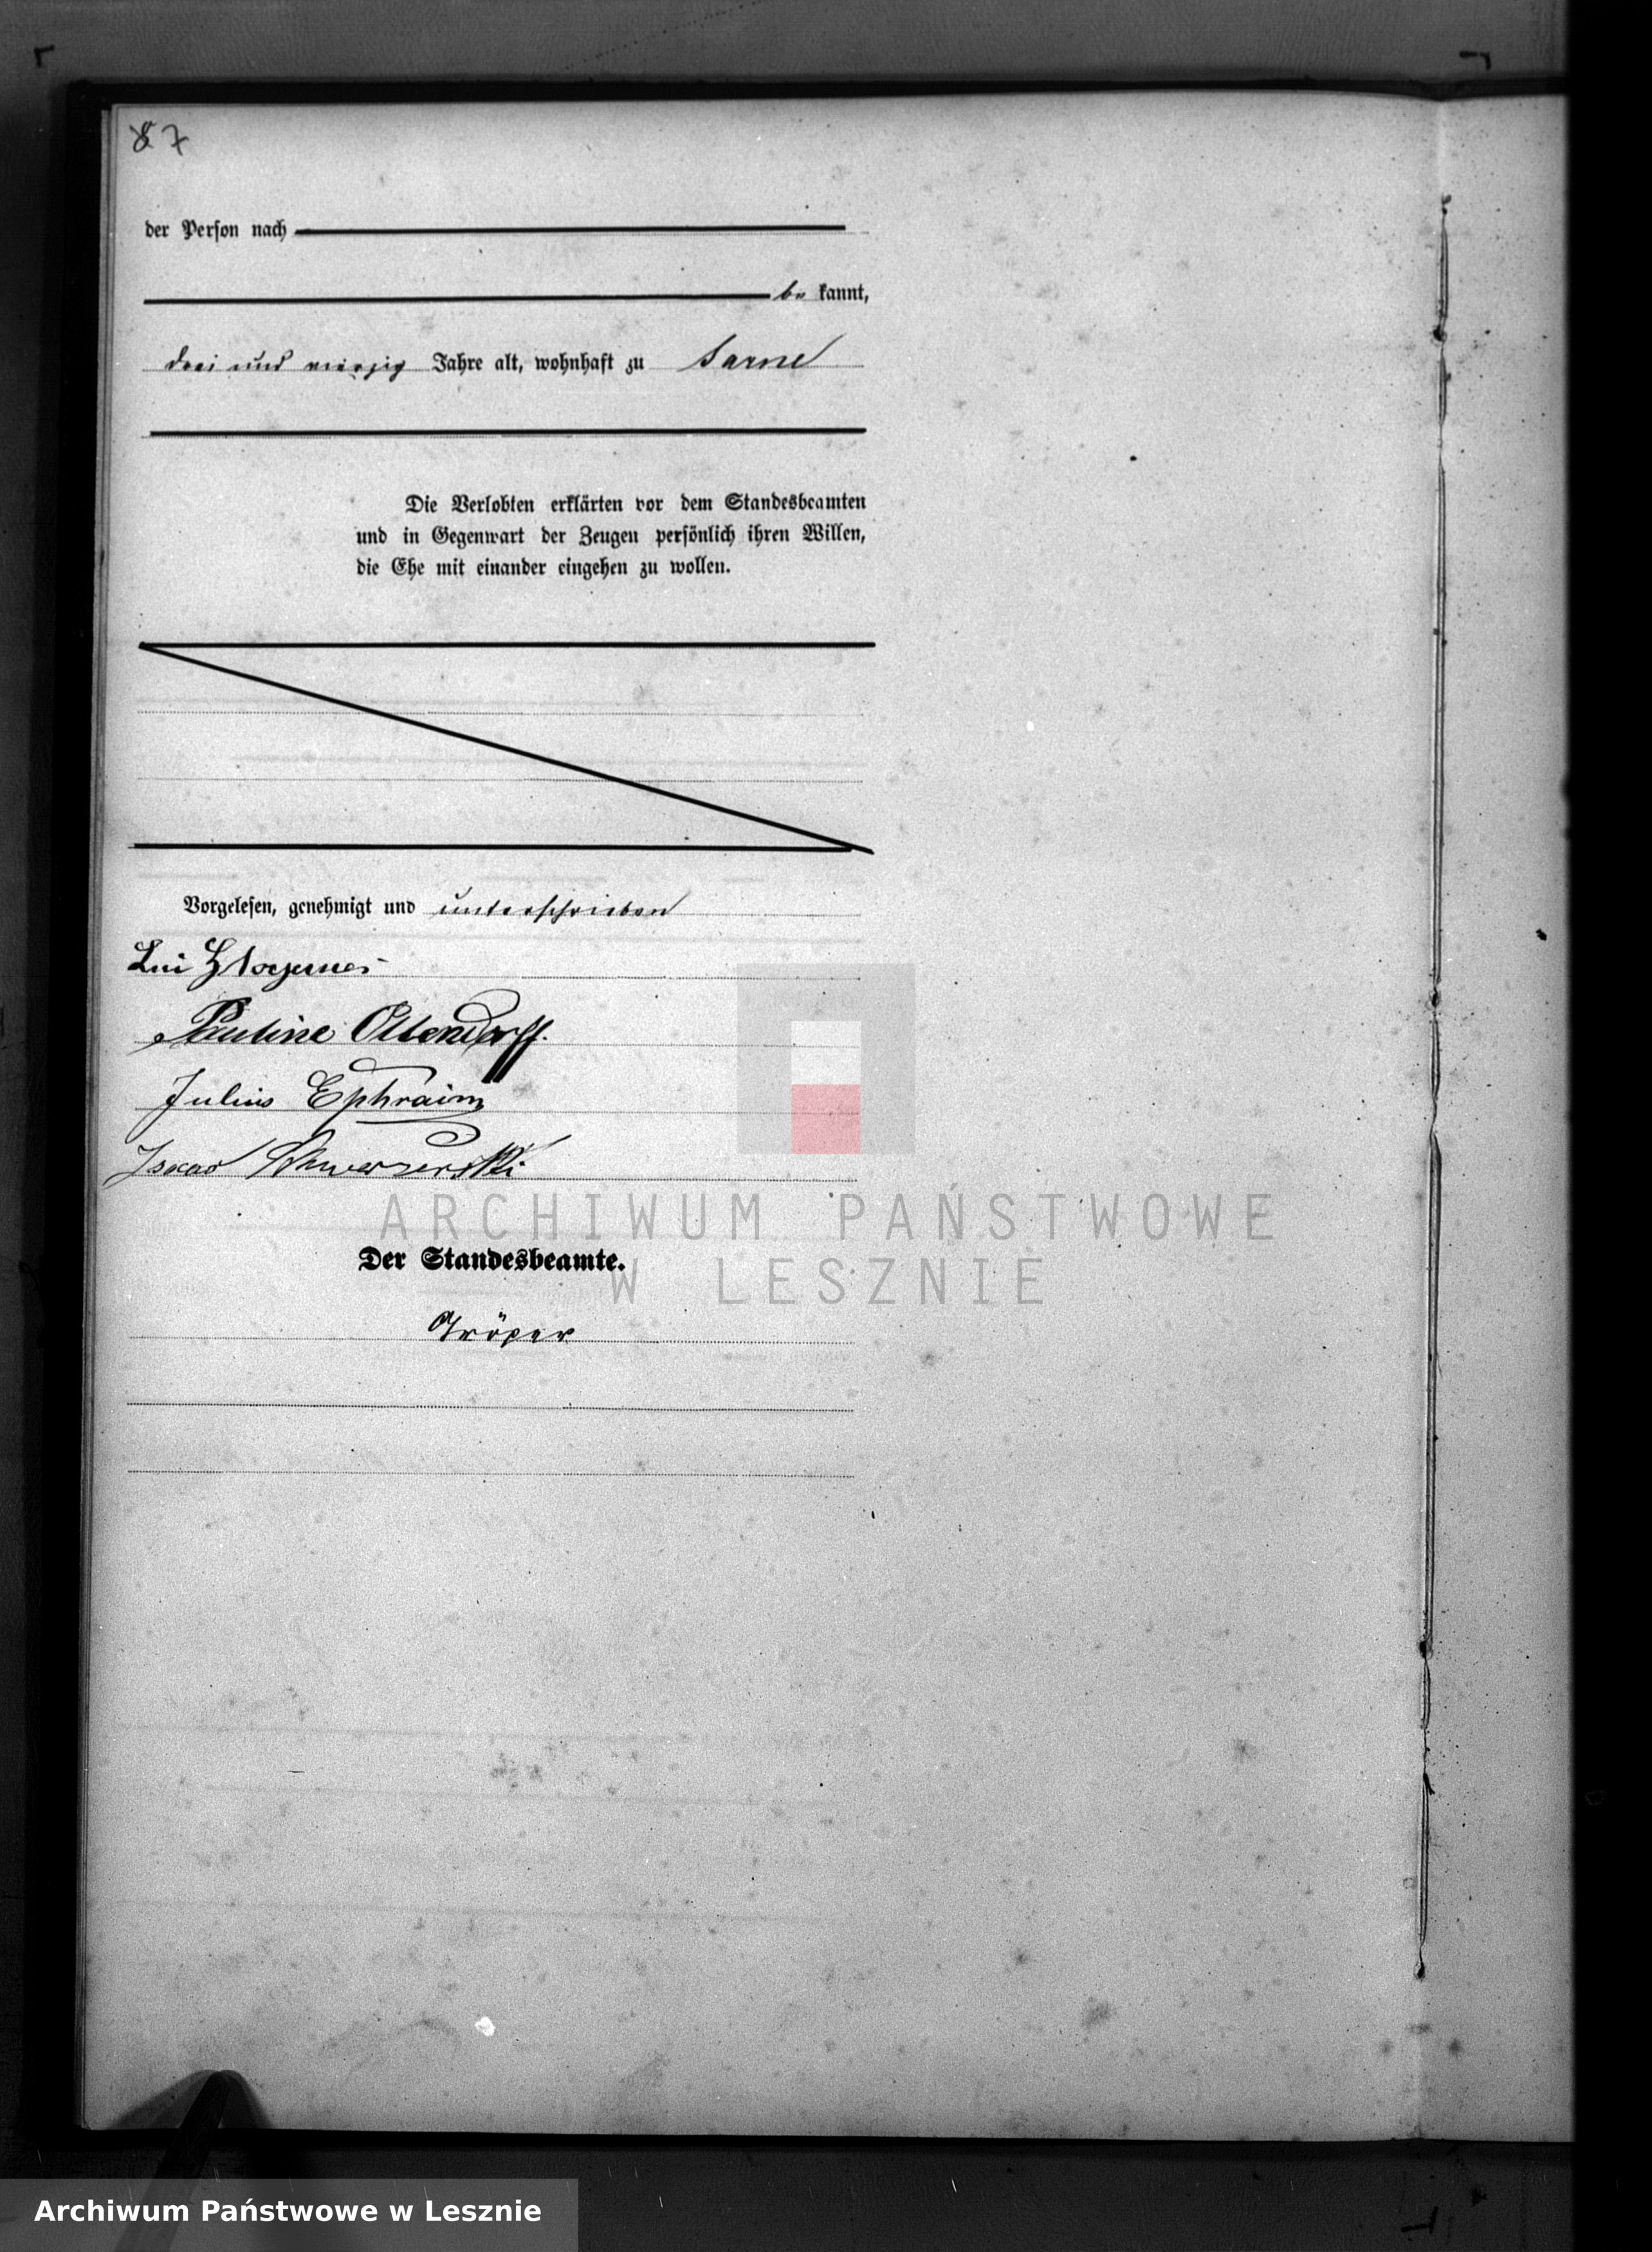 87
der Person nach
be kannt,
drei und vierzig Jahre alt, wohnhaft zu Sarne
Die Verlobten erklärten vor dem Standesbeamten
und in Gegenwart der Zeugen persönlich ihren Willen,
die Ehe mit einander eingehen zu wollen.
Vorgelesen, genehmigt und unterschrieben
Pauline Ollendorff.
Julius Ephraim
Isaac
ARCHIWUM PAŃSTWOWE
W LESZNIE
Der Standesbeamte.
Archiwum Państwowe w Lesznie